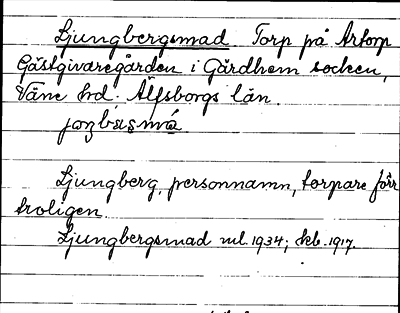 Ljungbergsmad. Torp på Artorp
Gästgivaregården i Gärdhem socken,
Väne hd. Älfsborgs län.
Ljungberg, personnamn, torpare förr
troligen.
Ljungbergsmad ml. 1934; kb. 1917.